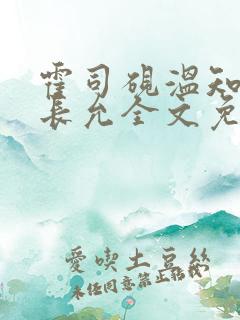 霍司砚温知
長允全文免
愛喫土豆絲
未经同意禁止转载